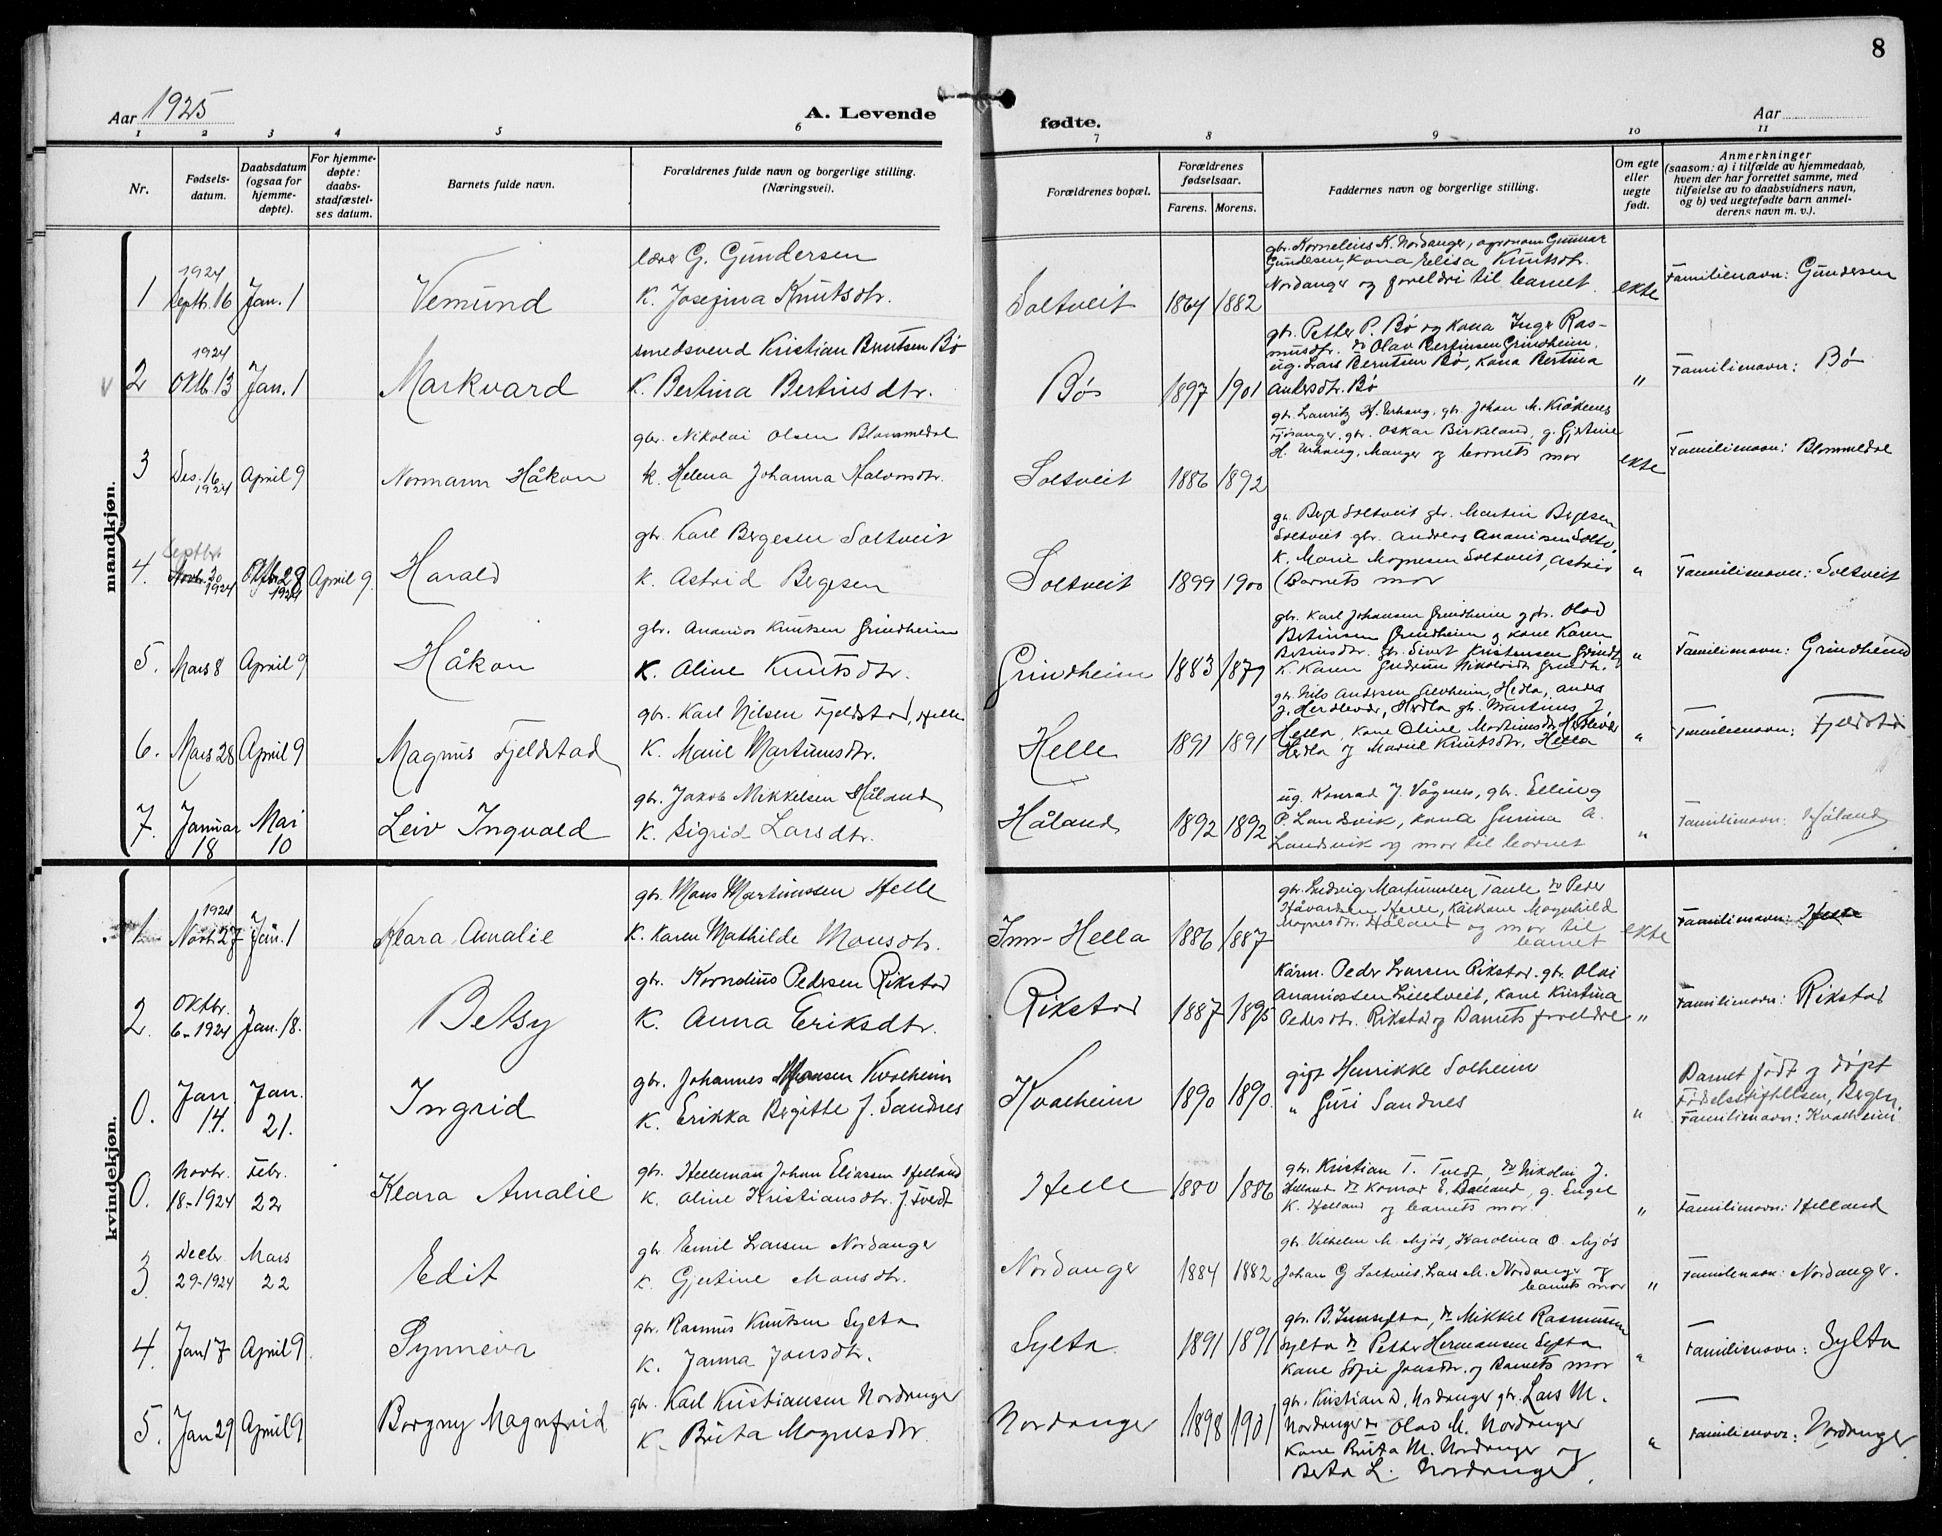 8
Aar 1925
A. Levende
fødte.
Aar
1 2 3 4 5 6 7 8 9 10 11
Nr.
Fødsels-
datum.
Daabsdatum
(ogsaa for
hjemme-
døpte).
For hjemme-
døpte:
daabs-
stadfæstel-
ses datum.
Barnets fulde navn.
Forældrenes fulde navn og borgerlige stilling.
(Næringsvei).
Forældrenes bopæl.
Forældrenes
fødselsaar.
Farens. Morens.
Faddernes navn og borgerlige stilling.
Om egte
eller
uegte
født.
Anmerkninger
(saasom: a) i tilfælde av hjemmedaab,
hvem der har forrettet samme, med
tilføielse av to daabsvidners navn,
og b) ved uegtefødte barn anmel-
derens navn m. v.).
mandkjøn.
1 1924 Septbr. 16 Jan. 1 Vemund
lærer G. Gundersen
K. Josefina Knutsdtr.
Soltveit 1864 1882
gbr. Kornelius K. Nordanger, agronom Gunnar
Gundersen, kona Elisa Knutsdtr.
Nordanger og foreldri til barnet.
ekte Familienavn: Gundersen
2 1924 Oktb. 13 Jan. 1 Markvard
smedsvend Kristian Berntsen Bø
K. Bertina Bertinsdtr.
Bø 1897 1901
gbr. Petter P. Bø og kona Inga Ras-
musdtr. Do Olav Bertinsen Grindheim.
ug. Lars Berntsen Bø, kona Bertina
Andersdtr. Bø
" Familienavn: Bø
3 Des. 16 1924 April 9 Normann Håkon
gbr. Nikolai Olsen Blommedal
k. Helena Johanna Halvorsdtr.
Soltveit 1886 1892
gbr. Lauritz H. Erhaug. gbr. Johan M. Kråkenes
gbr. Oskar Birkeland, g. Gjertine
H. Erhaug, Manger og barnets mor
ekte Familienavn: Blommedal
4. Septbr. 30 1924 Oktbr. 29 1924 April 9. Harald
gbr. Karl Bergesen Soltveit
K. Astrid Bergesen
Soltveit 1899 1900
gbr. Berge Soltveit gbr. Martin Bergesen
Soltveit gbr. Andreas Ananiassen Soltv.
K. Marie Mognesen Soltveit, Astrid
(Barnets mor
" Familienavn: Soltveit
5. Mars 8 April 9 Håkon
gbr. Ananias Knutsen Grindheim
K. Oline Knutsdtr.
Grindheim 1883 1879
gbr. Karl Johansen Grindheim gbr. Olai
Bertinsen Grindheim og kone Karen
Bertinsdtr. gbr. Sivert Kristensen Grindh.
K. Karen Gudrun Nikolaidtr Grindh.
" Familienavn: Grindheim
6. Mars 28 April 9 Magnus Fjeldstad
gbr. Karl Nilsen Fjeldstad, Helle
K. Marie Martinusdtr.
Helle 1891 1891
gbr. Nils Andersen Herdla, Anders
J. Herdlevær, Herdla gbr. Martinus J.
Hella, kone Oline Martinusdtr Herdlevær
Herdla og Marie Knutsdtr. Hella
" Familienavn: Fjeldstad
7. Januar 18 Mai 10 Leiv Ingvald
gbr. Jakob Mikkelsen Håland
K. Sigrid Larsdtr.
Håland 1892 1892
ug. Konrad J. Vågenes, gbr. Elling
P. Landsvik, kona Gurina A.
Landsvik og mor til barnet
" Familienavn: Håland
kvindekjøn.
1 1924 Novbr. 27 Jan. 1 Klara Amalie
gbr. Mons Martinussen Helle
K. Karen Mathilde Monsdtr.
Inn-Hella 1886 1887
gbr. Ludvig Martinussen Taule Do Peder
Håvardsen Helle, Magnhild
Mognesdtr. Håland og mor til
barnet
ekte Familienavn: Helle
2. Oktbr. 6-1924 Jan. 18. Betsy
gbr. Kornelius Pedersen Rikstad
K. Anna Eriksdtr.
Rikstad 1887 1895
Kårm. Peder Larsen Rikstad. gbr. Olai
Ananiassen Lilletveit, kone Kristina
Pedersdtr. Rikstad og Barnets foreldre
" Familienavn: Rikstad
0. Jan. 14. Jan. 21. Ingrid
gbr. Johannes Monsen Kvalheim
K. Erikka Birgitte J. Sandnes
Kvalheim 1890 1890.
gift Henrikke Solheim
" Guri Sandnes
" Barnet født og døpt
Fødselsstiftelsen, Bergen.
Familienavn: Kvalheim.
0. Novbr. 18-1924 Febr. 22 Klara Amalie
gbr. Helleman Johan Eliassen Helland
K. Oline Kristiansdtr. f. Tvedt
Helle 1880 1886
gbr. Kristian T. Tvedt, Do Nikolai J.
Helland Do Konrad E. Helland, g. Engel
K. Helland og barnets mor.
" Familienavn: Helland
3 Decbr. 29-1924 Mars 22 Edit
gbr Emil Larsen Nordanger
K. Gjertine Monsdtr.
Nordanger 1884 1882
gbr. Vilhelm M. Mjøs, Karolina O. Mjøs
Johan G Soltveit. Lars M. Nordanger og
barnets mor
" Familienavn: Nordanger.
4. Jan 7 April 9 Synneva
gbr. Rasmus Knutsen Sylta
K. Janna Jonsdtr.
Sylta 1891 1891
gbr. B. Sylta, Do Mikkel Rasmussen
Sylta Do Petter Hermansen Sylta
Kone Sofie Jonsdtr. og Barnets mor
" Familienavn: Sylta
5. Jan 29 April 9 Borgny Magnfrid
gbr. Karl Kristiansen Nordanger
K. Brita Mognesdtr.
Nordanger 1898 1901
gbr. Kristian D. Nordanger gbr. Lars M.
Nordanger Do Olav M. Nordanger
Kone Brita M. Nordanger og
Berta L. Nordanger.
" Familienavn: Nordanger